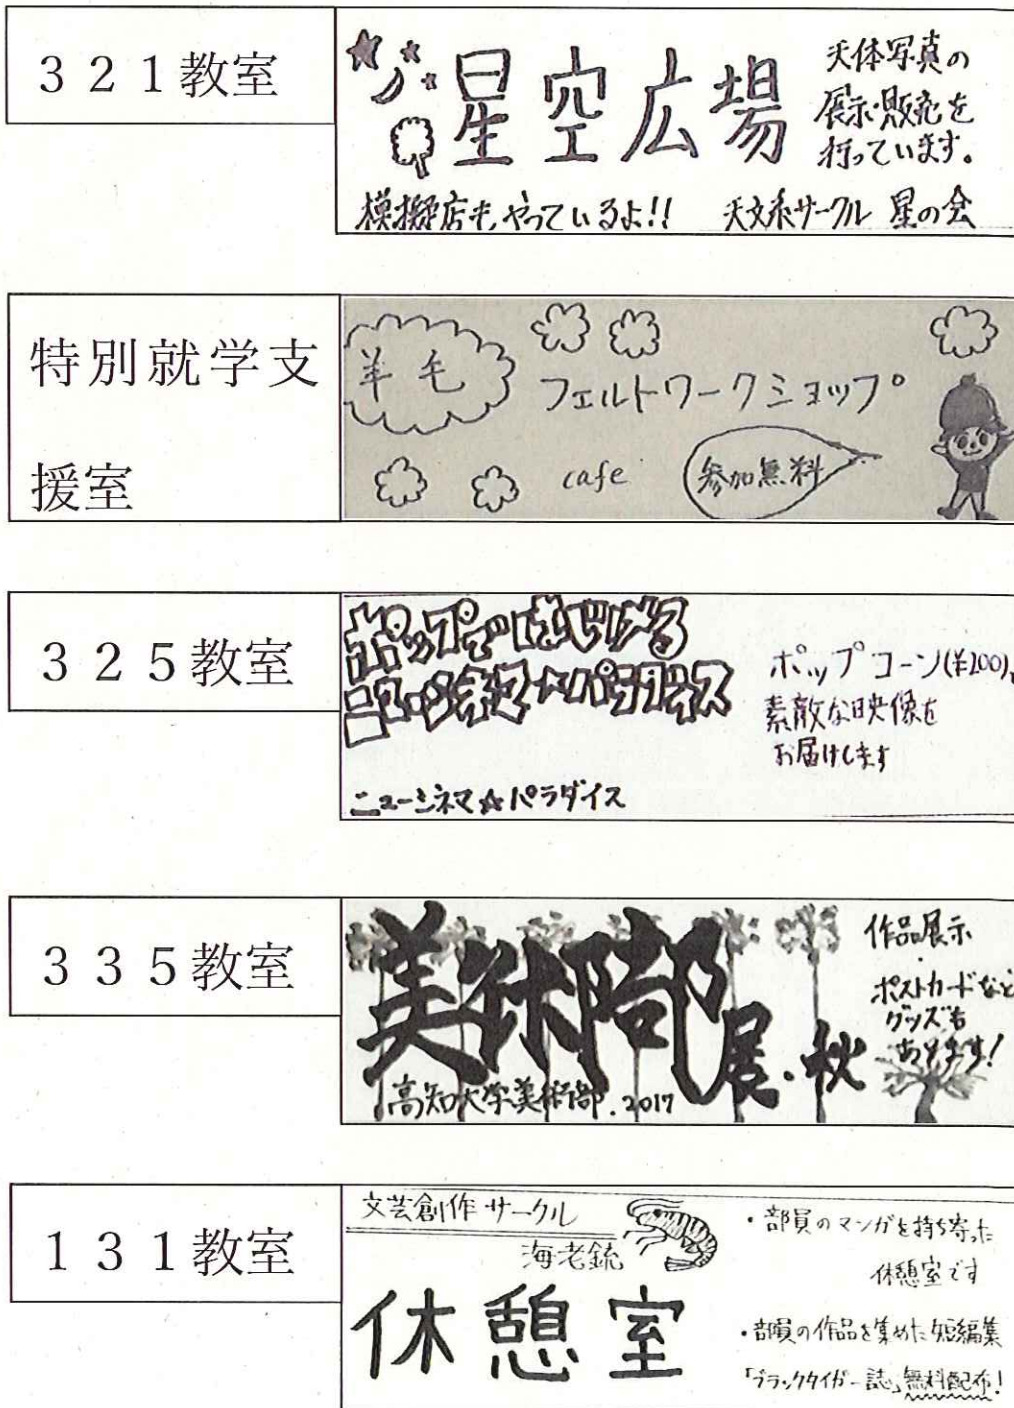 ３２１教室
星空広場
天体写真の
展示・販売を
行っています。
模擬店も、やっているよ!!　天文系サークル 星の会
特別就学支
援室
羊毛
フェルトワークショップ
cafe
参加無料
３２５教室
ポップではじける
ニューシネマ☆パラダイス
ポップコーン(¥200)、
素敵な映像を
お届けします
ニューシネマ☆パラダイス
３３５教室
美術部展・秋
高知大学美術部.2017
作品展示
・
ポストカードなど
グッズも
あります!
１３１教室
文芸創作サークル
海老銃
休憩室
・部員のマンガを持ち寄った
休憩室です
・部員の作品を集めた短編集
「ブラックタイガー誌」無料配布!